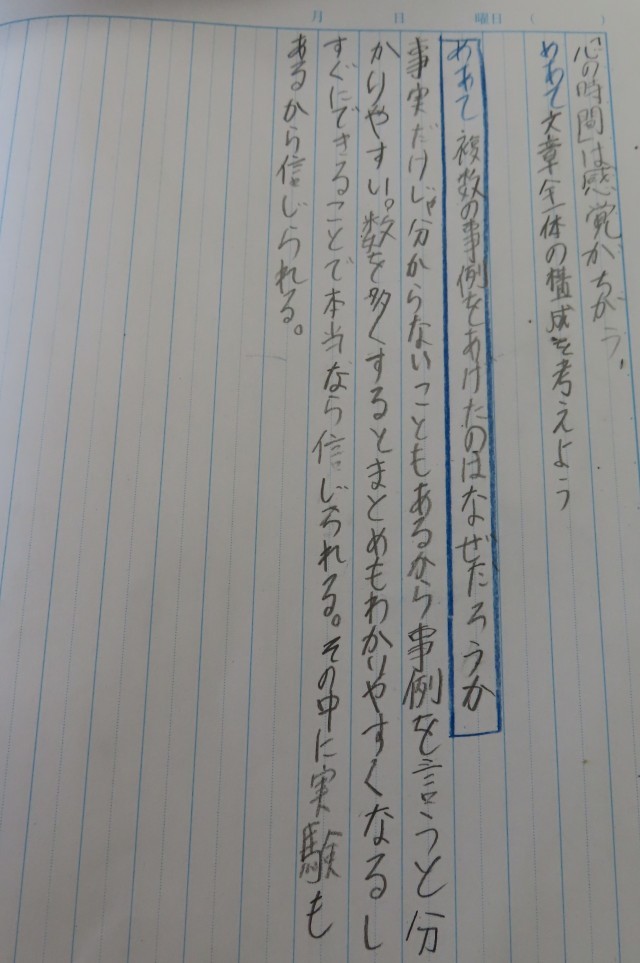 月　日　曜日（　　）
「心の時間」は感覚がちがう、
めあて文章全体の構成を考えよう
めあて 複数の事例をあげたのはなぜだろうか
事実だけじゃ分からないこともあるから事例を言うと分
かりやすい。数を多くするとまとめもわかりやすくなるし
すぐにできることで本当なら信じられる。その中に実験も
あるから信じられる。